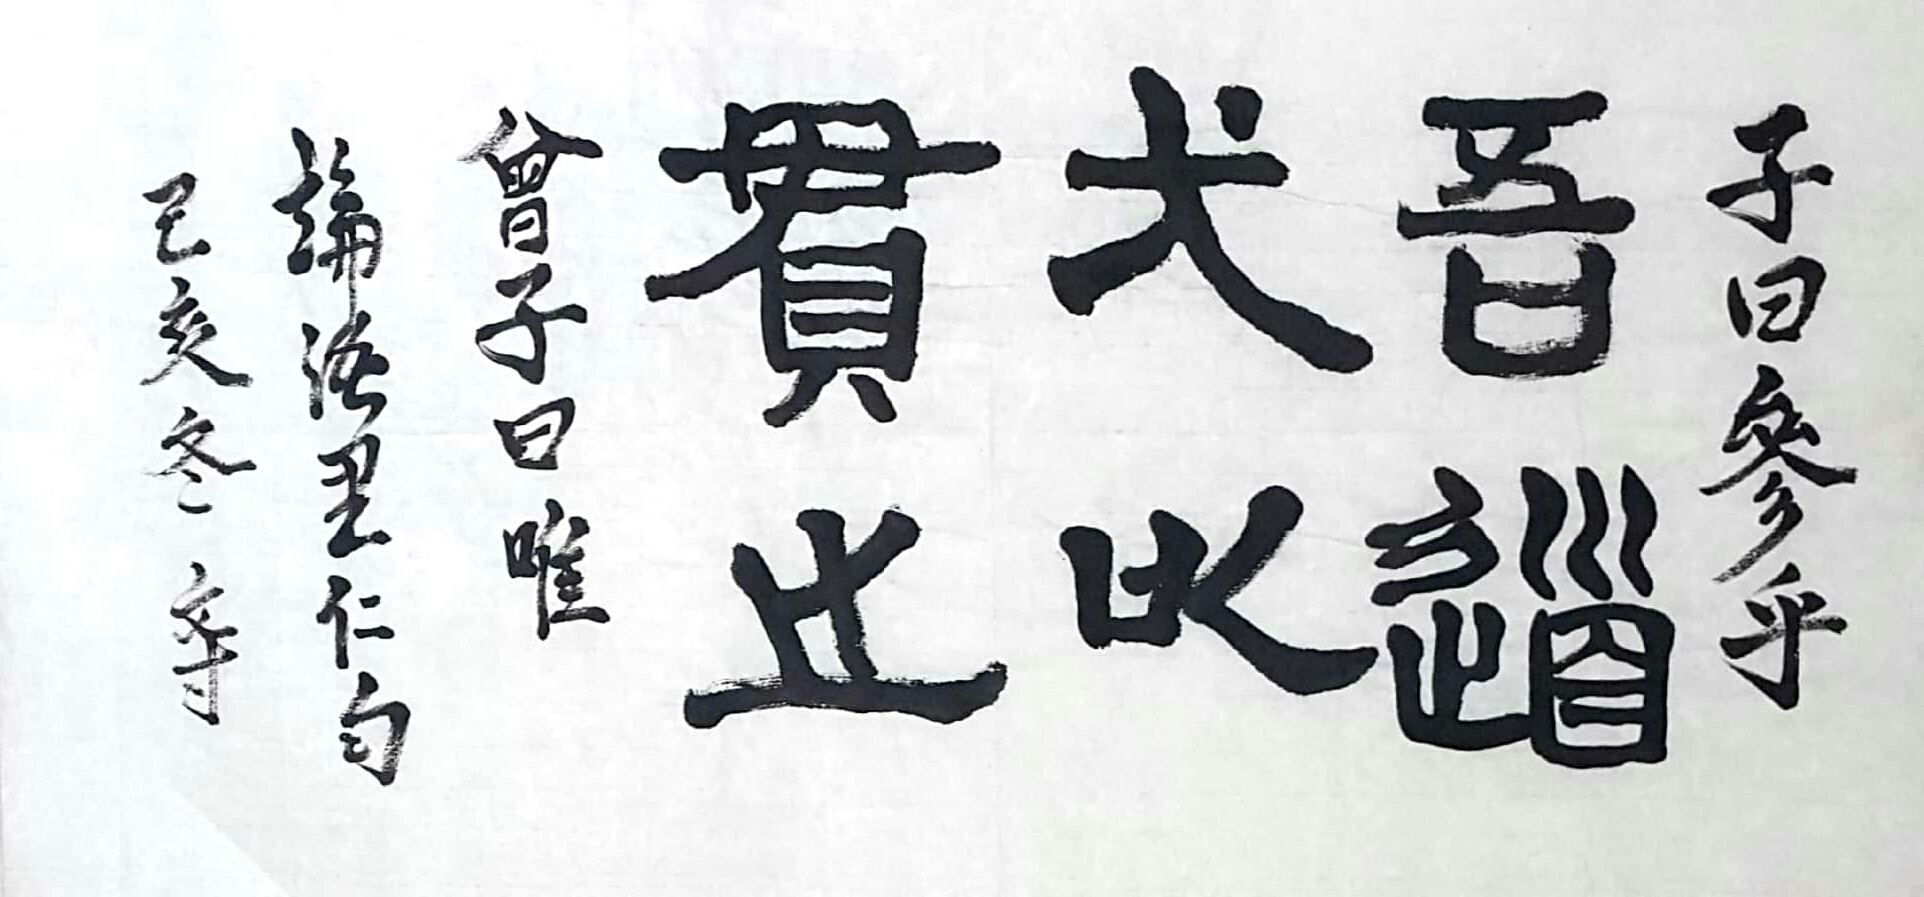 子曰參乎
吾道
弌以
貫之
曾子曰唯
論語里仁句
己亥冬